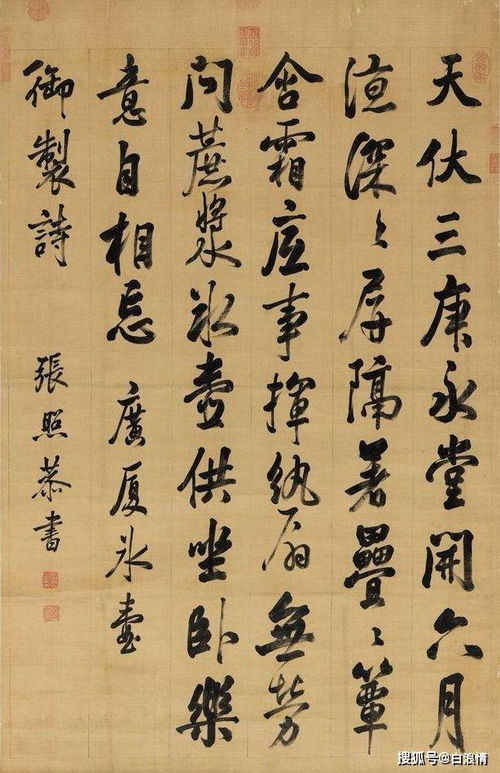 天伏三庚永堂開六月
涼深〻屏隔暑疊〻簟
含霜底事揮紈扇無勞
問蔗漿冰壺供坐臥樂
意自相忘 廣厦冰壺
御製詩 張照恭書
搜狐号@白浪情